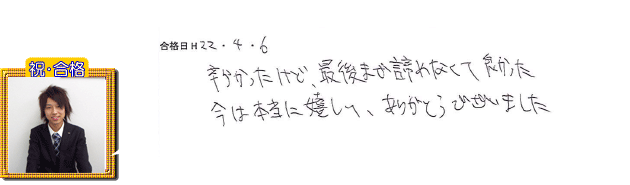 合格日H22・4・6
祝・合格
辛かったけど、最後まで諦めなくて良かった
今は本当に嬉しい、ありがとうございました